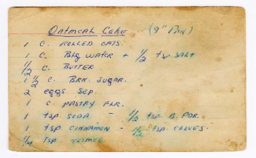 Oatmeal Cake (9" Pan)
1 C. Rolled Oats.
1 C. Blg Water + 1/2 tsp. Salt
1/2 C. Butter
1 1/2 C. Brn. Sugar.
2 eggs sep.
1 C. Pastry Flr.
1 tsp. Soda - 1/2 tsp. B. Pdr.
1 tsp. Cinnamon - tsp. Cloves.
1/4 tsp. Nutmeg